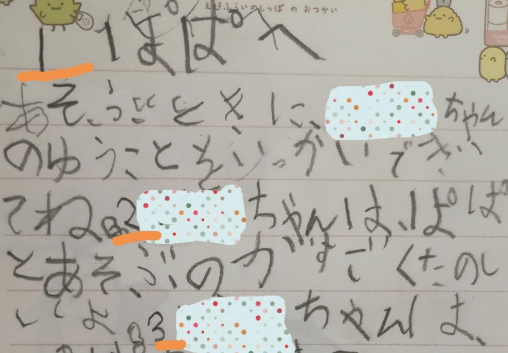 えびふらいのしっぽ の おつかい
1 ぱぱへ
あそぶときに、ちゃん
のゆうことをいっかいできい
てね。2 ちゃんは、ぱぱ
とあそぶのがすごくたのし
いよ。3 ちゃんは、